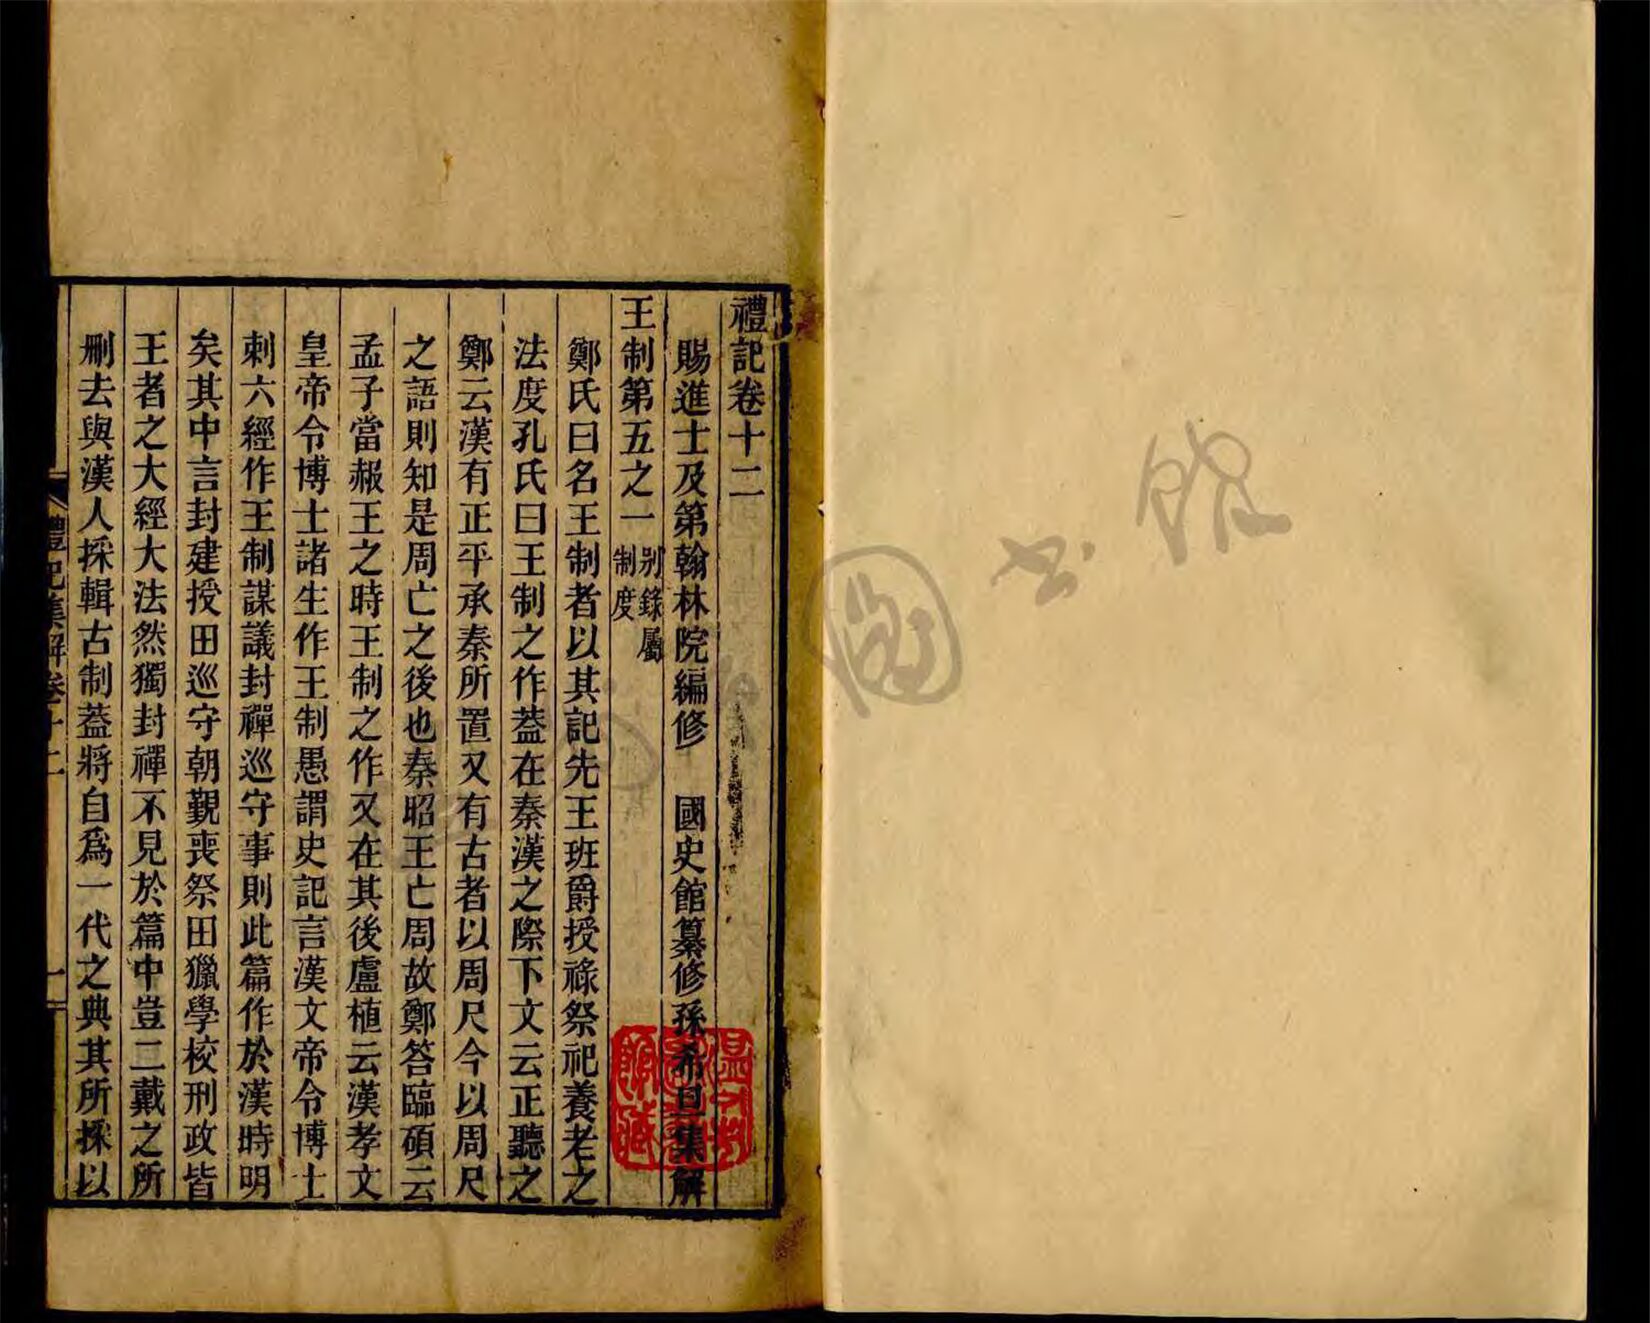 禮記卷十二
賜進士及第翰林院編修　國史館纂修孫希旦集解
王制第五之一別錄屬制度
鄭氏曰名王制者以其記先王班爵授祿祭祀養老之
法度孔氏曰王制之作蓋在秦漢之際下文云正聽之
鄭云漢有正平承秦所置又有古者以周尺今以周尺
之語則知是周亡之後也秦昭王亡周故鄭答臨碩云
孟子當赧王之時王制之作又在其後盧植云漢孝文
皇帝令博士諸生作王制愚謂史記言漢文帝令博士
刺六經作王制謀議封禪巡守事則此篇作於漢時明
矣其中言封建授田巡守朝覲喪祭田獵學校刑政皆
王者之大經大法然獨封禪不見於篇中豈二戴之所
刪去與漢人採輯古制蓋將自爲一代之典其所採以
禮記集解卷十二
一
圖書館